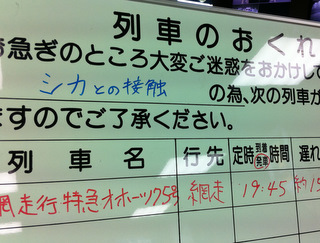 列車のおくれ
お急ぎのところ大変ご迷惑をおかけして
シカとの接触 の為、次の列車が
ますのでご了承ください。
列車名 行先 定時 到着 発車 時間 遅れ
網走行特急オホーツク5号 網走 19:45 約15